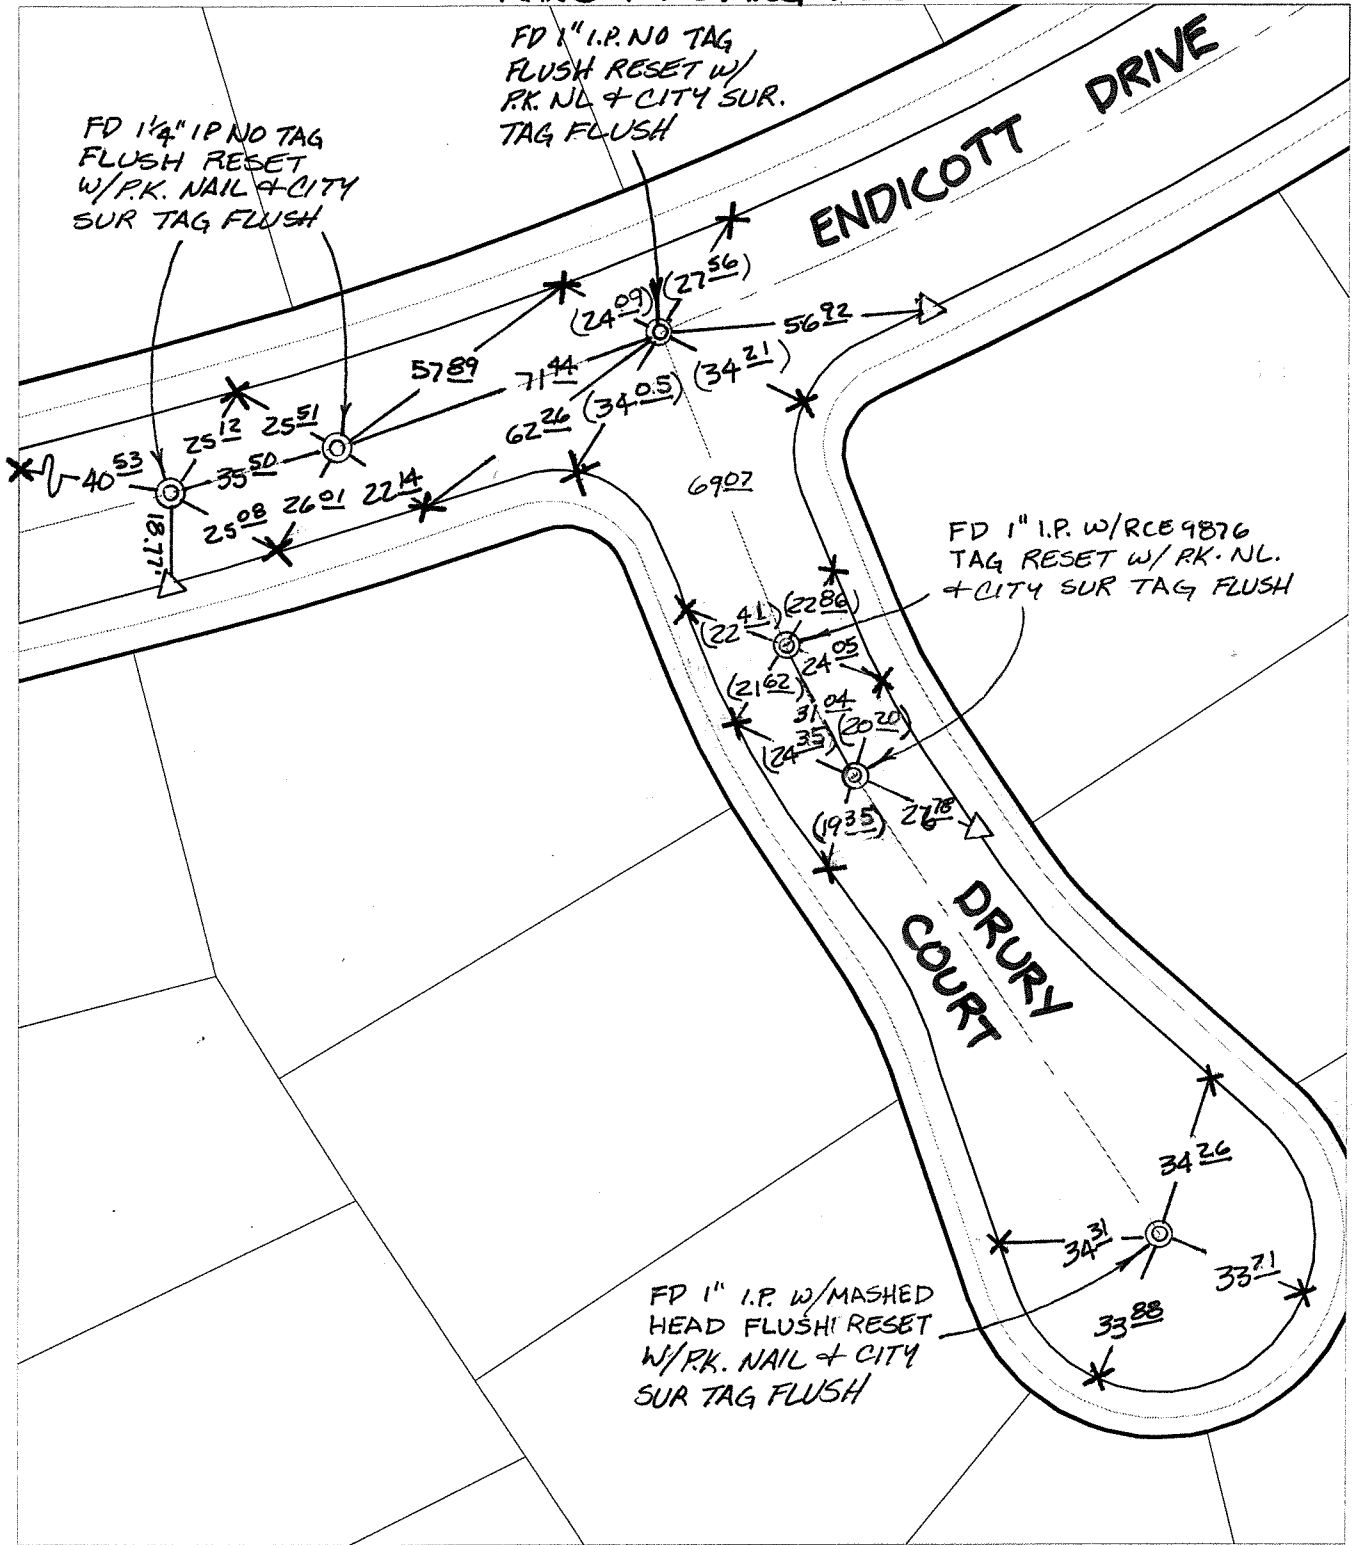 FD 1" I.P. NO TAG
FLUSH RESET W/
P.K. NL & CITY SUR.
TAG FLUSH
FD 1¼" IP NO TAG
FLUSH RESET
W/P.K. NAIL & CITY
SUR TAG FLUSH
ENDICOTT DRIVE
(27 56)
(24 09)
56 92
57 89
71 44
(34 21)
(34 0.5)
62 26
25 51
25 12
40 53
35 50
22 14
26 01
25 08
18.77'
69 07
FD 1" I.P. W/RCE 9876
TAG RESET W/ P.K. NL.
& CITY SUR TAG FLUSH
(22 41)
(22 86)
24 05
(21 62)
31 04
(24 35)
(20 20)
(19 35)
DRURY
COURT
34 26
34 31
33 71
33 88
FD 1" I.P. W/MASHED
HEAD FLUSH RESET
W/P.K. NAIL & CITY
SUR TAG FLUSH